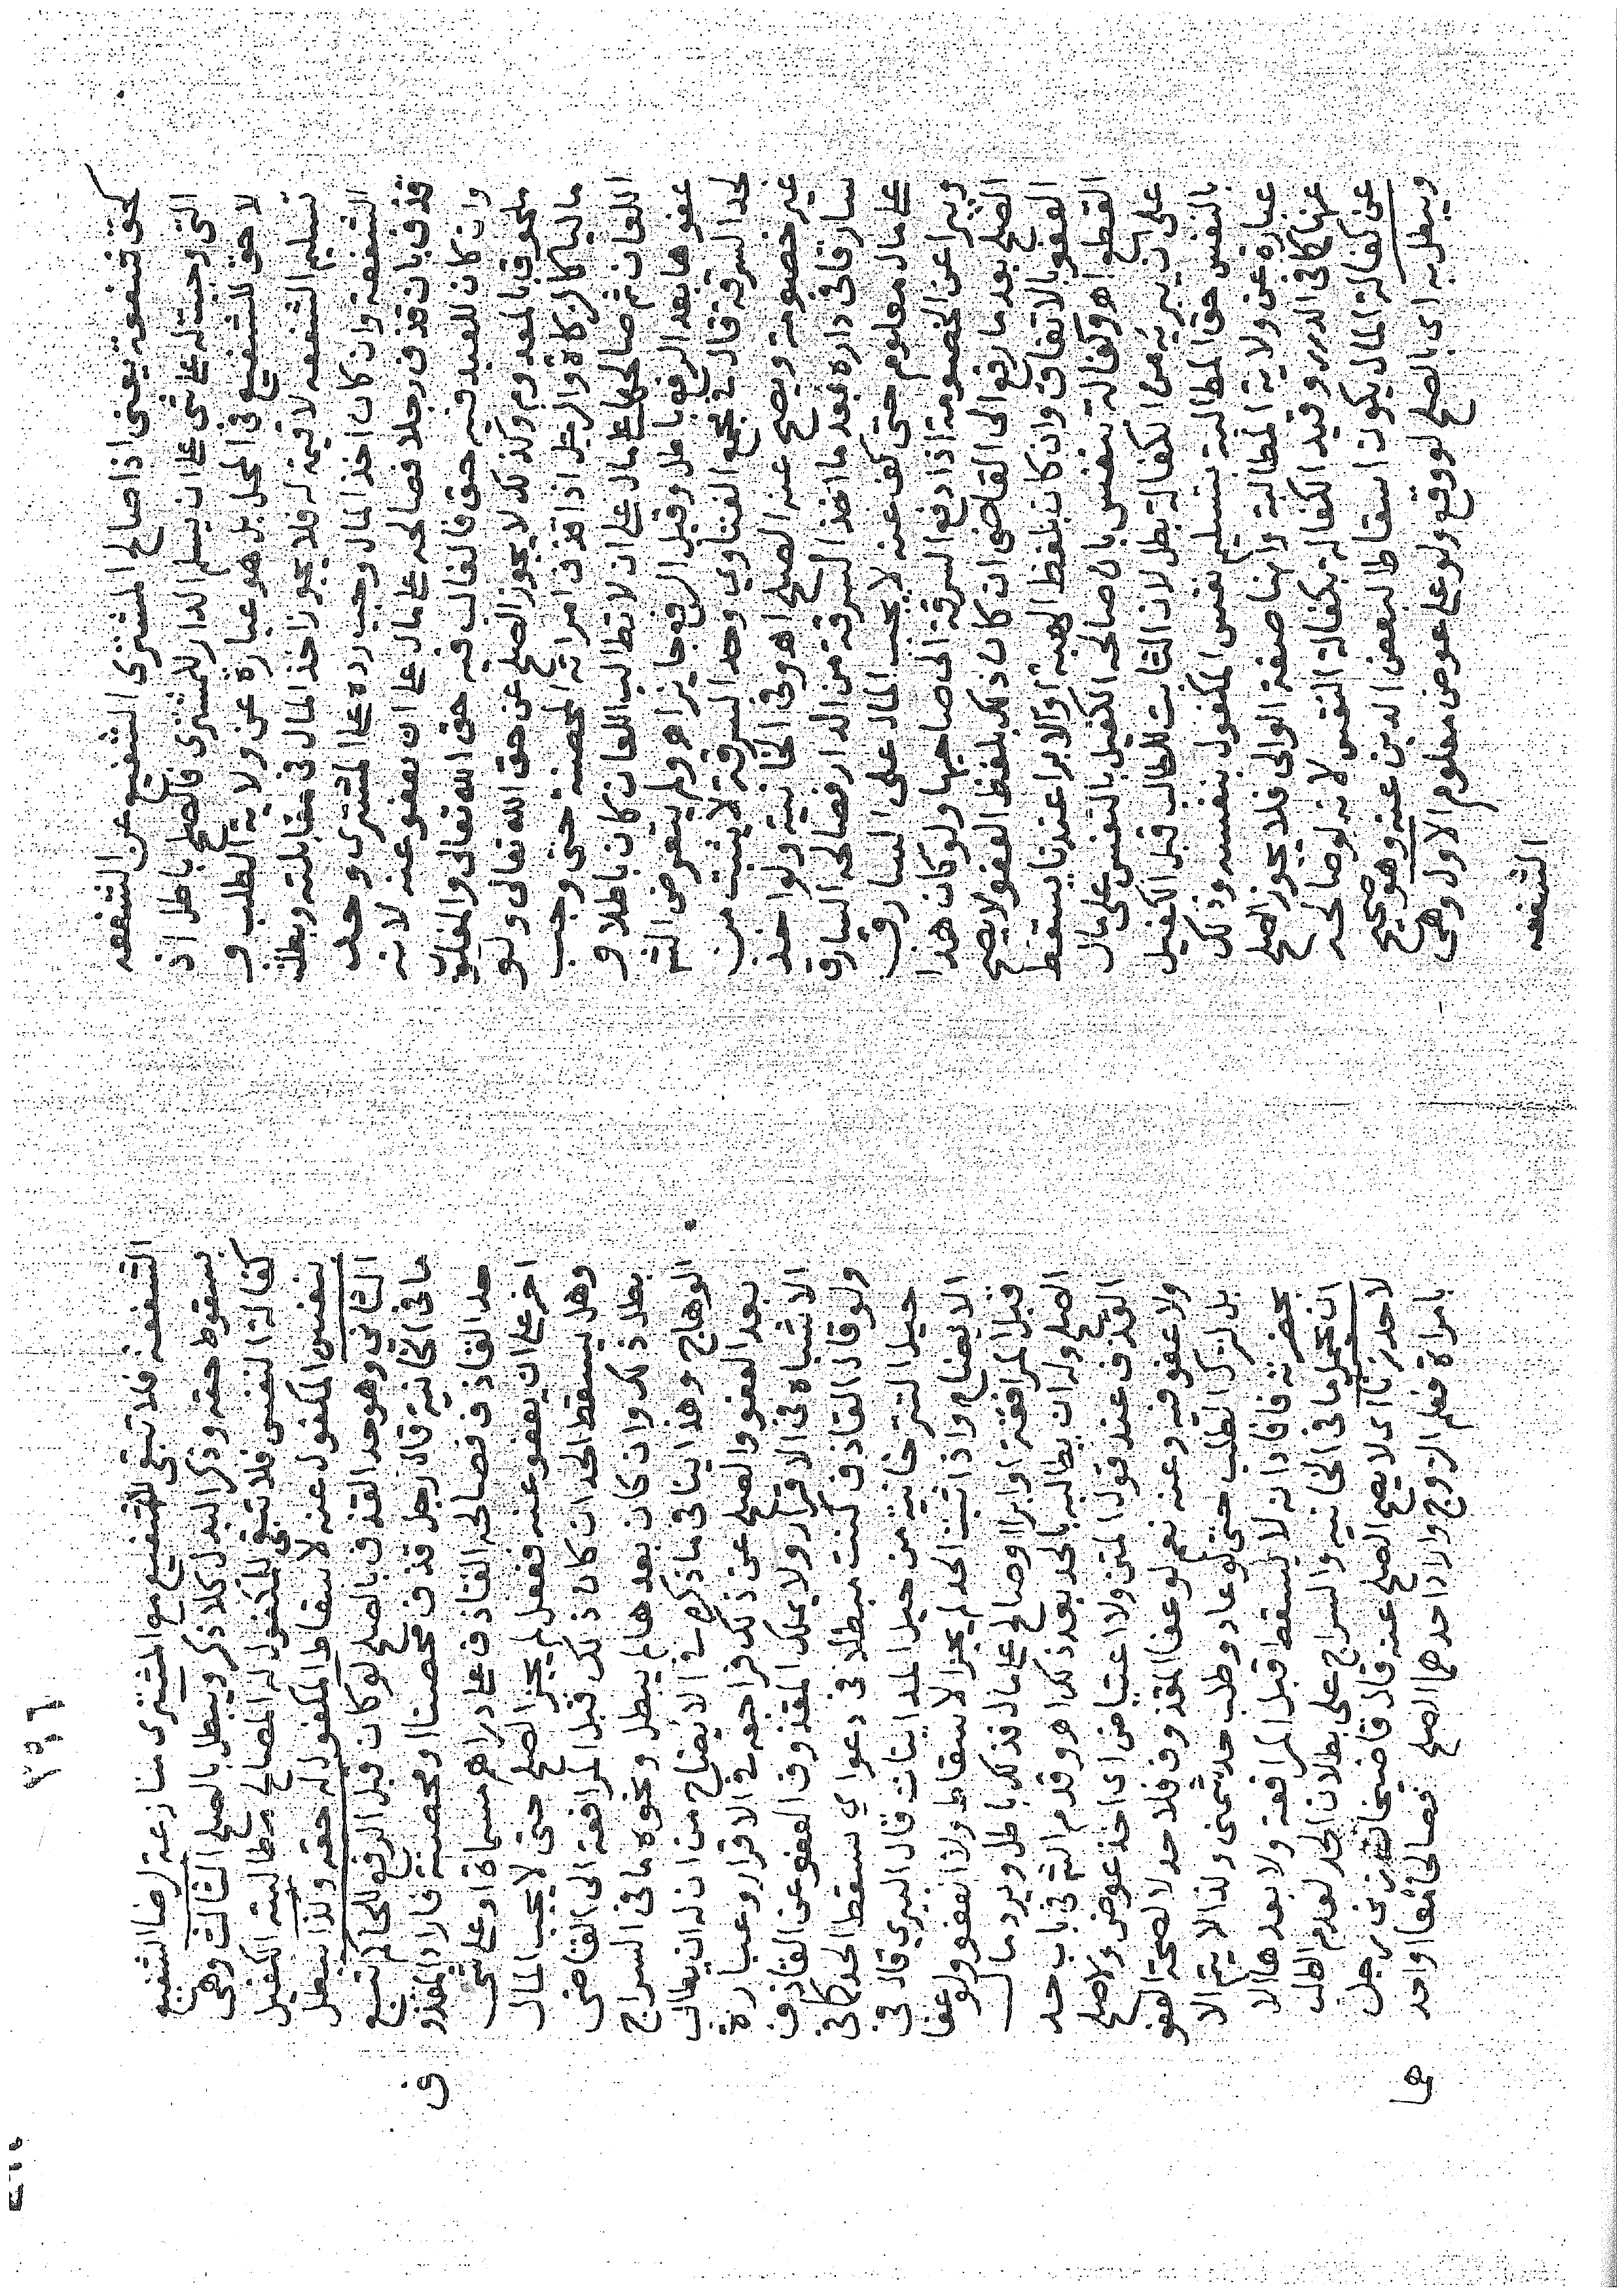 كحق شفعة يعنى اذا صالح المشترى الشفيع عن الشفعه
التى وجبت له على شى على ان يسلم الدار للمشترى فالصلح باطل اذ
لا حق للشفيع فى المحل بل هو عبارة عن ولاية الطلب و
تسليم الشفعه لا قيمة له فلا يجوز اخذ المال فى مقابلته وبطلت
الشفعة وان كان اخذ المال وجب رده على المشترى وحد
قذف بان قذف رجلا فصالحه على مال على ان يعفو عنه لانه
وان كان للعبد فيه حق فالغالب فيه حق الله تعالى والمغلوب
ملحق بالمعدوم وكذلك لا يجوز الصلح عن حق الله تعالى ولو
ماليا كالزكاة والرجل اذا قذف امراته المحصنه حتى وجب
اللعان ثم صالحها على مال على ان لا تطالب اللعان كان باطلا و
عفوها بعد الرفع باطل وقبل الرفع جايز اهـ ولم يتعرض الشـ
لحد السرقة قال فى مجمع الفتاوي وحد السرقة لا يثبت من
غير خصومة ويصح عنه الصلح اهـ وفى الخانية ولو اخذ
سارقا فى داره بعد ما اخذ السرقة من الدار فصالحه السارق
على مال معلوم حتى كف عنه لا يجب المال على السارق
ويبرا عن الخصومة اذا دفع السرقة الى صاحبها ولو كان هذا
الصلح بعد ما رفع الى القاضى ان كان ذلك بلفظ العفو لا يصح
العفو بالاتفاق وان كان بلفظ الهبة او الابرا عندنا يسقط
القطع اهـ وكفالة بنفس بان صالحه الكفيل بالنفس على مال
على ان يبريه من الكفالة بطل لان الثابت للطالب قبل الكفيل
بالنفس حق المطالبة بتسليم نفس المكفول بنفسه وذلك
عبارة عن ولاية المطالبة وانها صفة الوالى فلا يجوز الصلح
عنها كما فى الدرر وقيد الكفالة بكفالة النفس لانه لو صالحه
عن كفالة المال يكون اسقاطا لبعض الدين عنه وهو صحيح
ويبطل به اى بالصلح لو وقع ولو على عوض معلوم الاول وهى
الشفعه
٣٥٦
الشفعة فلا تبقى للشفيع مع المشترى منازعة لرضا الشفيع
بسقوط حقه وذكر البدل كلا ذكر ويبطل بالصلح الثالث وهى
كفالة النفس فلا تبقى للمكفول له المصالح مطالبته الكفيل
بنفس المكفول عنه لاسقاط المكفول له حقه ولذا يبطل
الثانى وهو حد القذف بالصلح لو كان قبل الرفع للحاكم تبع
ما فى الخانية قال رجل قذف محصنا او محصنة فاراد المقذو
ف
حد القاذف فصالحه القاذف على دراهم مسماة او على شى
اخر على ان يعفو عنه ففعل لم يجز الصلح حتى لا يجب المال
وهل يسقط الحد ان كان ذلك قبل المرافعة الى القاضى
بطل ذلك وان كان بعدها لم يبطل ونحوه ما فى السراج
الوهاج وهذا ينافى ما ذكره فى الايضاح من ان له ان يطالب
بعد العفو والصلح عن ذلك فراجعه فى الاقرار وعبارة
الاشباه فى الاقرار ولا يملك المقذوف العفو عن القاذف
ولو قال المقذوف كنت مبطلا فى دعواي سقط الحد كما فى
حيل التترخانية من حيل المداينات قال البيري قال فى
الايضاح واذا ثبت الحد لم يجز الاسقاط ولا العفو ولو عفا
قبل المرافعة او ابرا او صالح على مال فذلك باطل ويرد مال
الصلح وله ان يطالبه بالحد بعد ذلك اهـ وقدم الشـ فى باب حد
القذف عند قول المتن ولا اعتياض اى اخذ عوض ولا صلح
ولا عفو فيه وعنه نعم لو عفا المقذوف فلا حد لا لصحة العفو
بل لترك الطلب حتى لو عاد وطلب حد شمنى ولذا لا يتم الا
بحضرته فافاد انه لا يسقط قبل المرافعة ولا بعدها الا
ان يحمل ما فى الخانيه والسراج على بطلان الحد لعدم الطلب
لا حد زنا اى لا يصح الصلح عنه قال قاضيخان زنى رجل
بامراة فعلم الزوج واراد احدهما الصلح فصالحا معا او احد
هما